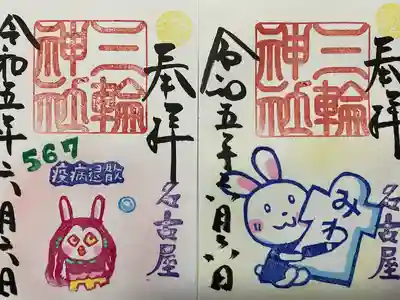 奉拝
三輪神社
令和五年六月六日
567
疫病退散
名古屋
奉拝
三輪神社
令和五年六月六日
みわ
名古屋